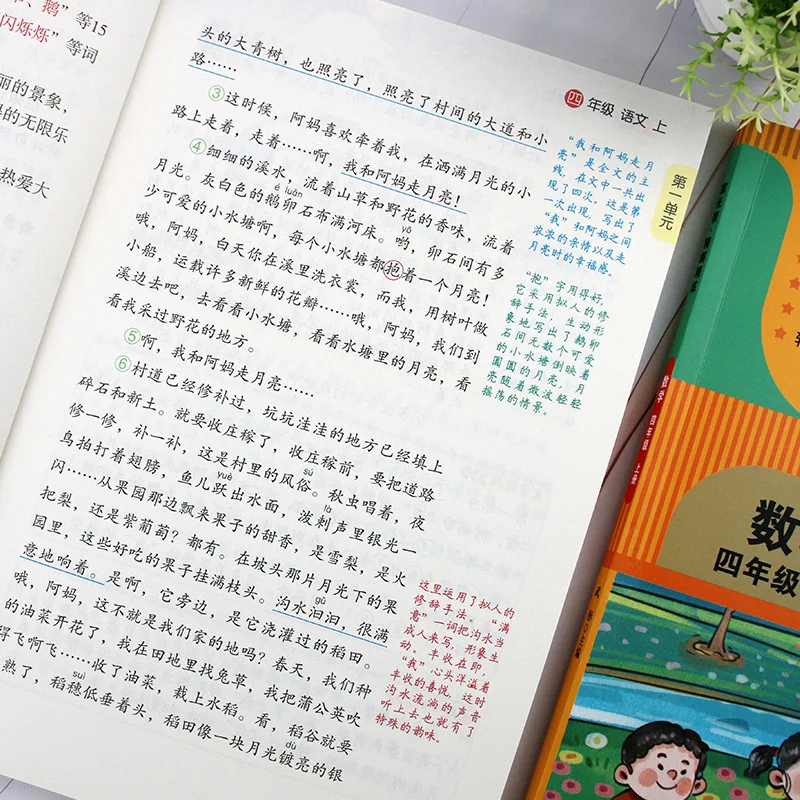 、鹅”等15
闪烁烁”等词
丽的景象，
的无限乐
热爱大
四年级 语文 上
第一单元
头的大青树，也照亮了，照亮了村间的大道和小
路……
③这时候，阿妈喜欢牵着我，在洒满月光的小
路上走着，走着……啊，我和阿妈走月亮！
④细细的溪水，流着山草和野花的香味，流着
é luǎn
月光。灰白色的鹅卵石布满河床。哟，卵石间有多
yō
少可爱的小水塘啊，每个小水塘都抱着一个月亮！
哦，阿妈，白天你在溪里洗衣裳，而我，用树叶做
小船，运载许多新鲜的花瓣……哦，阿妈，我们到
溪边去吧，去看看小水塘，看看水塘里的月亮，看
看我采过野花的地方。
⑤啊，我和阿妈走月亮……
⑥村道已经修补过，坑坑洼洼的地方已经填上
碎石和新土。就要收庄稼了，收庄稼前，要把道路
修一修，补一补，这是村里的风俗。秋虫唱着，夜
sú
鸟拍打着翅膀，鱼儿跃出水面，泼剌声里银光一
yuè
là
闪……从果园那边飘来果子的甜香，是雪梨，是火
把梨，还是紫葡萄？都有。在坡头那片月光下的果
园里，这些好吃的果子挂满枝头。沟水汩汩，很满
gǔ
意地响着。是啊，它旁边，是它浇灌过的稻田。
哦，阿妈，这不就是我们家的地吗？春天，我们种
的油菜开花了，我在田地里找兔草，我把蒲公英吹
得飞啊飞……收了油菜，栽上水稻。看，稻谷就要
suì
熟了，稻穗低垂着头，稻田像一块月光镀亮的银
dù
“我和阿妈走月
亮”是全文的主
线，在文中一共出
现了四次。这是第
一次出现，写出了
“我”和阿妈之间
浓浓的亲情以及走
月亮时的幸福感。
“抱”字用得好，
它采用拟人的修
辞手法，生动形
象地写出了鹅卵
石间无数个可爱
的小水塘倒映着
圆圆的月亮，月
亮随着微波轻轻
摇荡的情景。
这里运用了拟人的
修辞手法。“满
意”一词把沟水当
成人来写，形象生
动。丰收在即，
“我”心头洋溢着
丰收的喜悦，这时
沟水流淌的声音
听上去也就有了
特殊的韵味。
数学 四年级 上
数
四年级